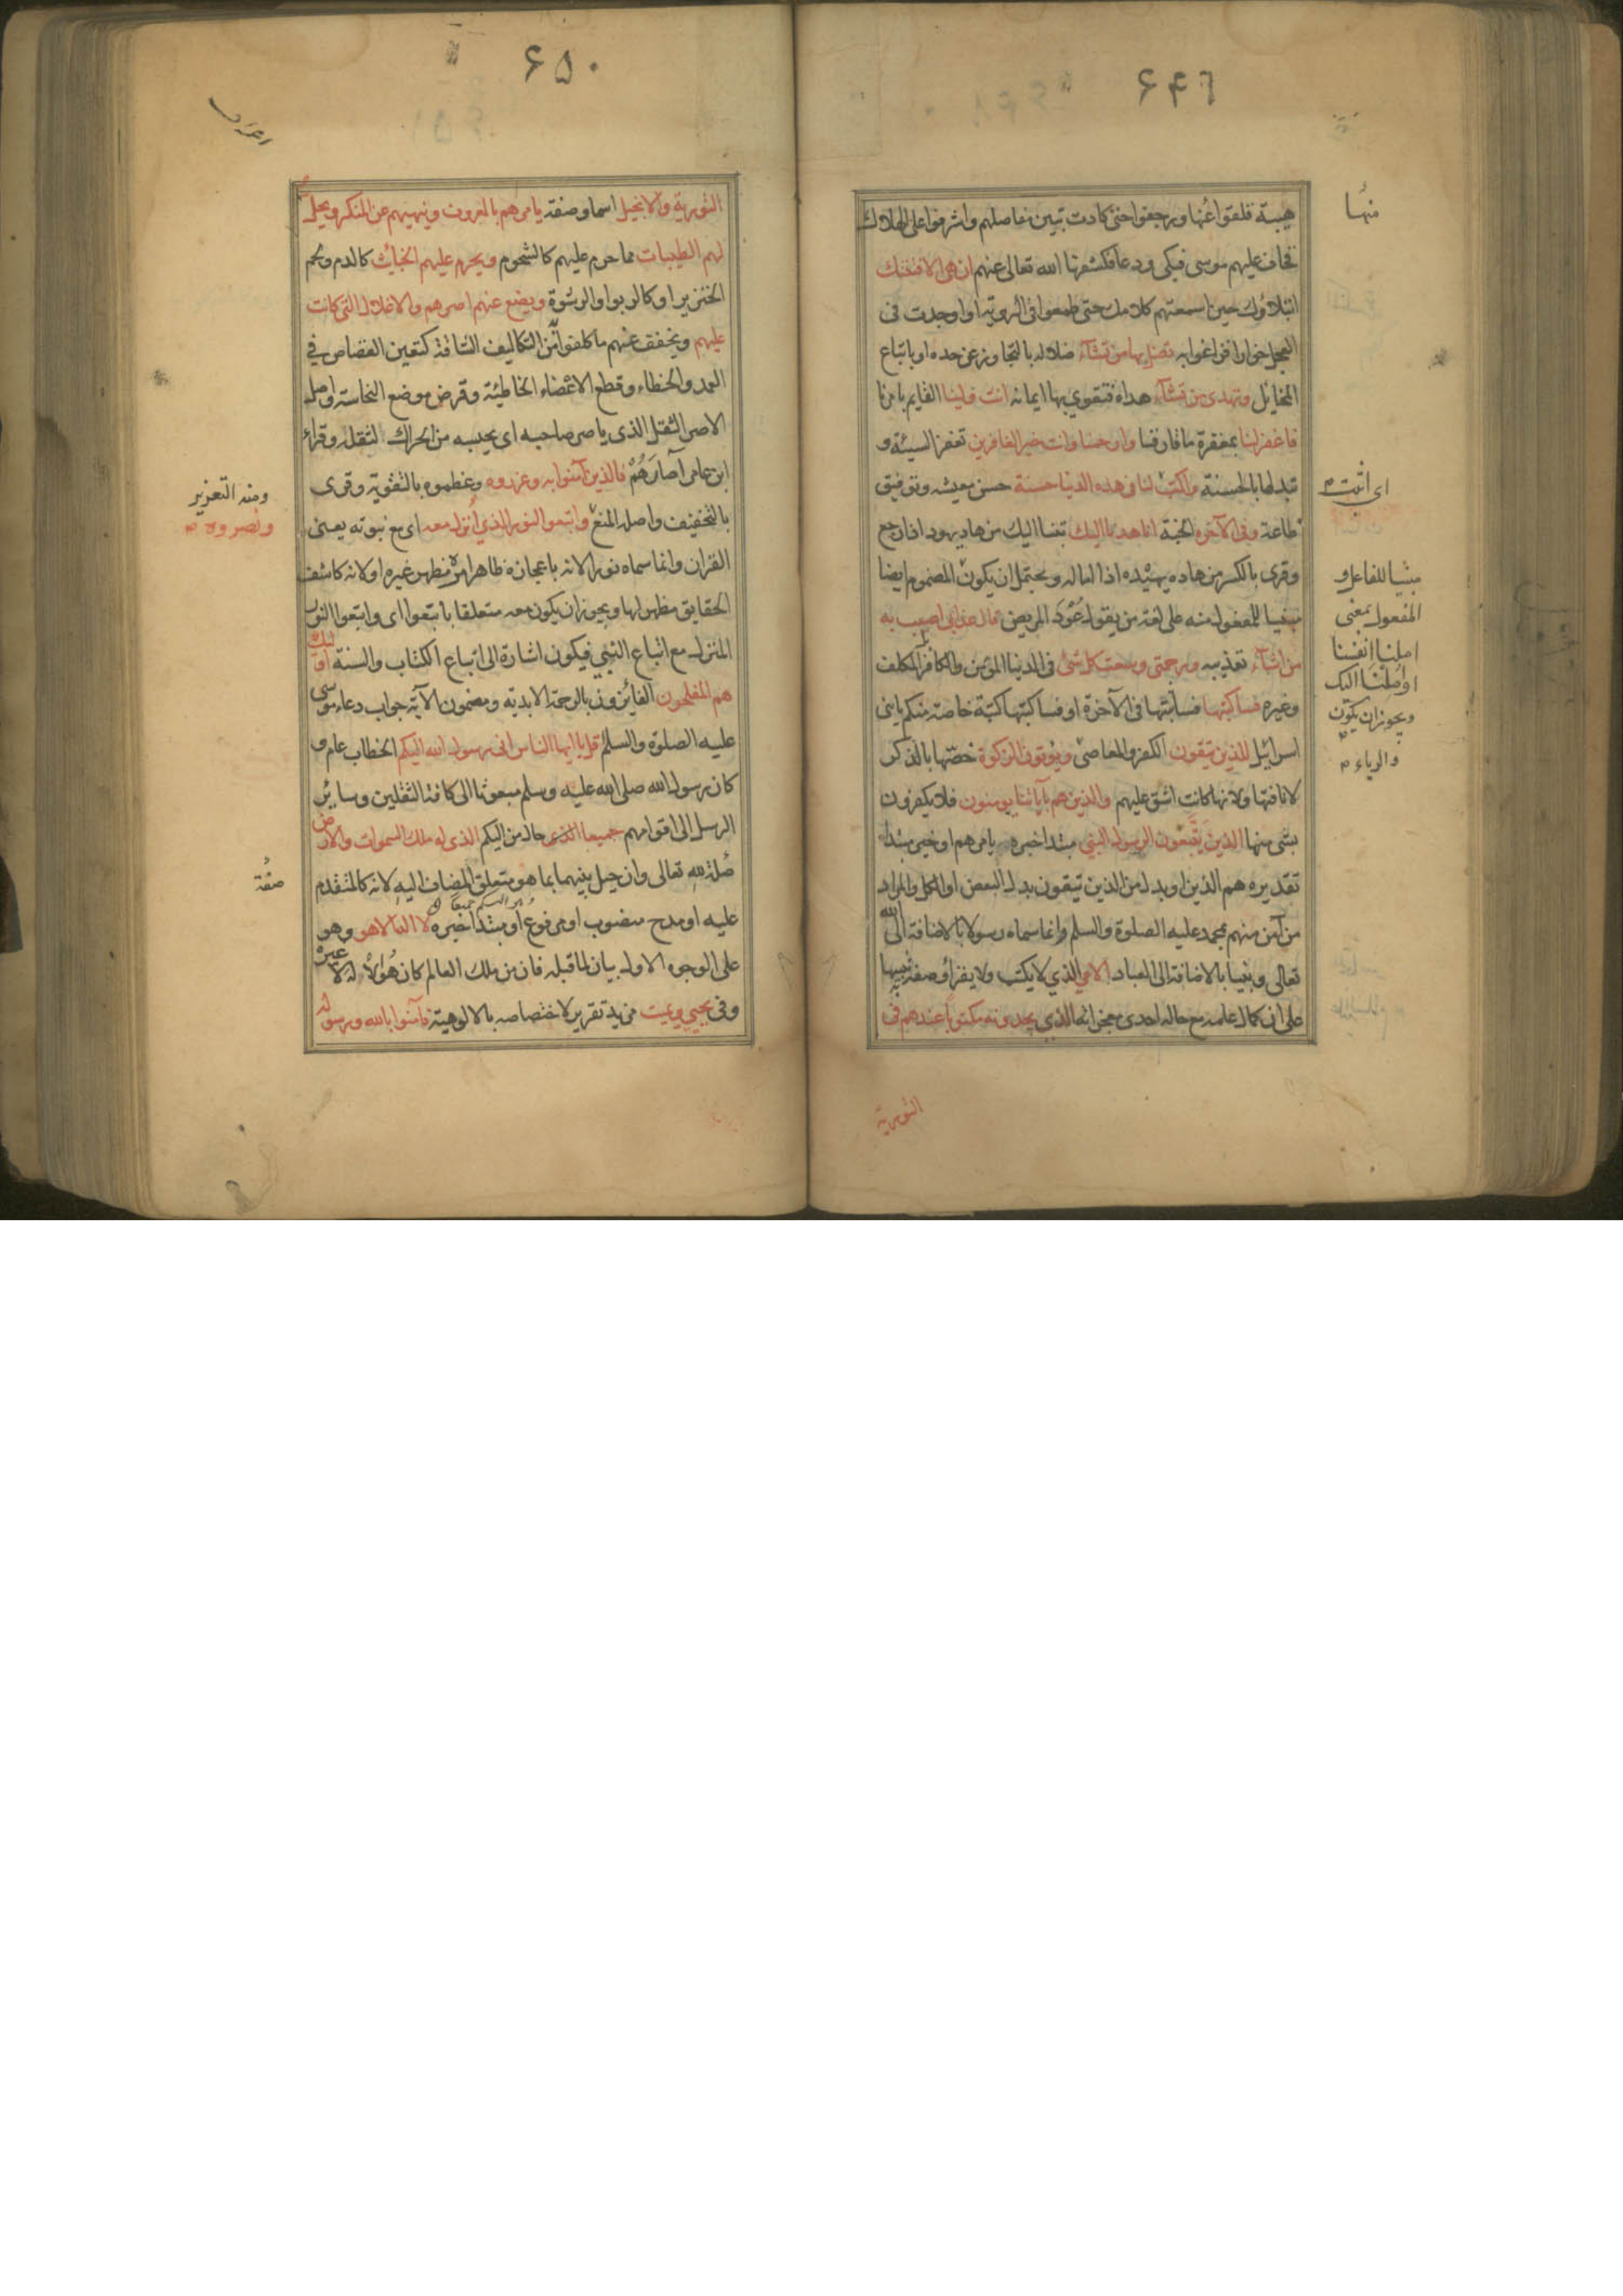 ۶۴۹
هيبة فلقوا عنها ورجفوا حتى كادت تبين مفاصلهم واشرفوا على الهلاك
فخاف عليهم موسى فبكى ودعا فكشفها الله تعالى عنهم ان هى الا فتنتك
ابتلاؤك حين اسمعتهم كلامك حتى طمعوا فى الروية او اوجدت فى
العجل خوارا فزاغوا به تضل بها من تشآء ضلاله بالتجاوز عن حده او باتباع
المخايل وتهدى من تشآء هداه فتقوي بها ايمانه انت ولينا القايم بامرنا
فاغفر لنا بمغفرة ما قارفنا وارحمنا وانت خير الغافرين تغفر السيئة و
تبدلها بالحسنة واكتب لنا فى هذه الدنيا حسنة حسن معيشه وتوفيق
طاعة وفى الآخرة الجنة انا هدنا اليك تبنا اليك من هاد يهود اذا رجع
وقرى بالكسر من هاده يهيده اذا اماله ويحتمل ان يكون المضموم ايضا
مبنيا للمفعول منه على لغة من يقول عُوْدَ المريض قال عذابى اصيب به
من اشآء تعذيبه ورحمتى وسعت كل شئ فى الدنيا المؤمن والكافر المكلف
وغيره فساكتبها فساثبتها فى الآخرة او فساكتبها كتبة خاصة منكم يا بنى
اسرائيل للذين يتقون الكفر والمعاصى ويؤتون الزكوة خصها بالذكر
لانافتها ولانها كانت اشق عليهم والذين هم بآياتنا يومنون فلا يكفرون
بشى منها الذين يتبعون الرسول النبي مبتدا خبره يامرهم او خبر مبتدا
تقديره هم الذين او بدل من الذين يتقون بدل البعض او الكل والمراد
من آمن منهم بمحمد عليه الصلوة والسلم وانما سماه رسولا بالاضافة الى الله
تعالى ونبيا بالاضافة الى العباد الامي الذي لا يكتب ولا يقرأ وصفه به تنبيها
على ان كمال علمه مع حاله احدى معجزاته الذي يجدونه مكتوبا عندهم فى
منها
اى اثبت
مبنيا للفاعل و
المفعول بمعنى
املنا انفسنا
او اُمِلْنَا اليك
ويجوز ان يكون
والرياء
التورية
۶۵۰
التورية والانجيل اسما وصفة يامرهم بالمعروف وينهيهم عن المنكر ويحل
لهم الطيبات مما حرم عليهم كالشحوم ويحرم عليهم الخبائث كالدم ولحم
الخنزير او كالربوا والرشوة ويضع عنهم اصرهم والاغلال التى كانت
عليهم ويخفف عنهم ما كلفوا من التكاليف الشاقة كتعين القصاص في
العمد والخطاء وقطع الاعضاء الخاطئة وقرض موضع النجاسة واصل
الاصر الثقل الذى ياصر صاحبه اى يحبسه من الحراك لثقله وقراء
ابن عامر آصَارَهُمْ فالذين آمنوا به وعزروه وعظموه بالتقوية وقرى
بالتخفيف واصله المنع واتبعوا النور الذي اُنزل معه اى مع نبوته يعنى
القران وانما سماه نورا لانه باعجازه ظاهر امره مظهر غيره او لانه كاشف
الحقايق مظهر لها ويجوز ان يكون معه متعلقا باتبعوا اى واتبعوا النور
المنزل مع اتباع النبي فيكون اشارة الى اتباع الكتاب والسنة اولئك
هم المفلحون الفائزون بالرحمة الابدية ومضمون الآية جواب دعاء موسى
عليه الصلوة والسلم قل يا ايها الناس انى رسول الله اليكم الخطاب عام و
كان رسول الله صلى الله عليه وسلم مبعوثا الى كافة الثقلين وسائر
الرسل الى اقوامهم جميعا الذى حال من اليكم الذى له ملك السموات والارض
صفة لله تعالى وان حيل بينهما بما هو متعلق المضاف اليه لانه كالمتقدم
عليه او مدح منصوب او مرفوع او مبتدا خبره لا اله الا هو وهو
على الوجوه الاول بيان لما قبله فان من ملك العالم كان هو الا له لا غيره
وفى يحيي ويميت مزيد تقرير لاختصاصه بالالوهية فآمنوا بالله ورسوله
ومنه التعزير
ونصروه
صفة